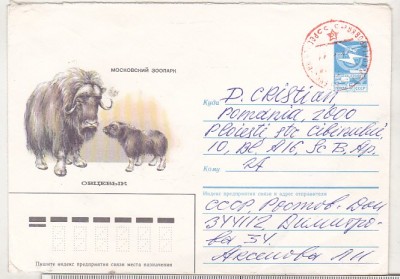 МОСКОВСКИЙ ЗООПАРК
ОВЦЕБЫК
Куда D. CRISTIAN
România, 2000
Ploiești str Cibinului
10, Bl A16, Sc B, Ap.
Кому 24
Индекс предприятия связи и адрес отправителя
СССР, Ростов-Дон
344112, Димитро-
ва 34.
Аксенова Л.И
Пишите индекс предприятия связи места назначения